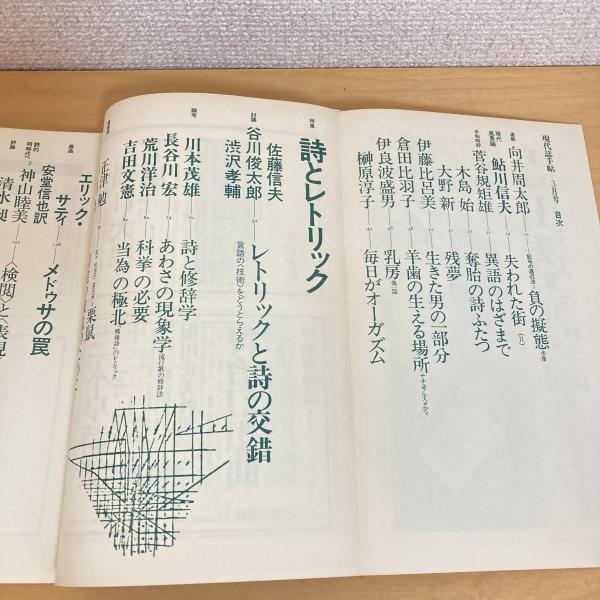 現代詩手帖 3月号 目次
連載
向井周太郎 負の擬態 連載
現代風景論
鮎川信夫 失われた街〔II〕
菅谷規矩雄 異語のはざまで
木島 始 奪胎の詩ふたつ
大野 新 残夢
伊藤比呂美 生きた男の一部分
倉田比羽子 羊歯の生える場所 ナチュラル・スタディ
伊良波盛男 乳房 他一篇
榊原淳子 毎日がオーガズム
特集
詩とレトリック
討議
佐藤信夫
谷川俊太郎
渋沢孝輔
レトリックと詩の交錯
言語の〈技術〉をどうとらえるか
論考
川本茂雄 詩と修辞学
長谷川 宏 あわさの現象学 流行歌の修辞法
荒川洋治 科挙の必要
吉田文憲 当為の極北 「戦後詩」のレトリック
正津 勉
栗鼠
戯曲
エリック・サティ
安堂信也訳
メドゥサの罠
詩的
神山睦美
評論
清水
〈検閲〉と〈表現